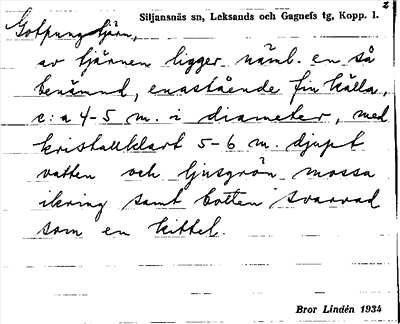 2
Siljansnäs sn, Leksands och Gagnefs tg, Kopp. l.
Gotpungstjärn,
av tjärnen ligger näml. en så
benämnd, enastående fin källa,
c:a 4-5 m. i diameter, med
kristallklart 5-6 m. djupt
vatten och ljusgrön mossa
ikring samt botten svarvad
som en kittel.
Bror Lindén 1934